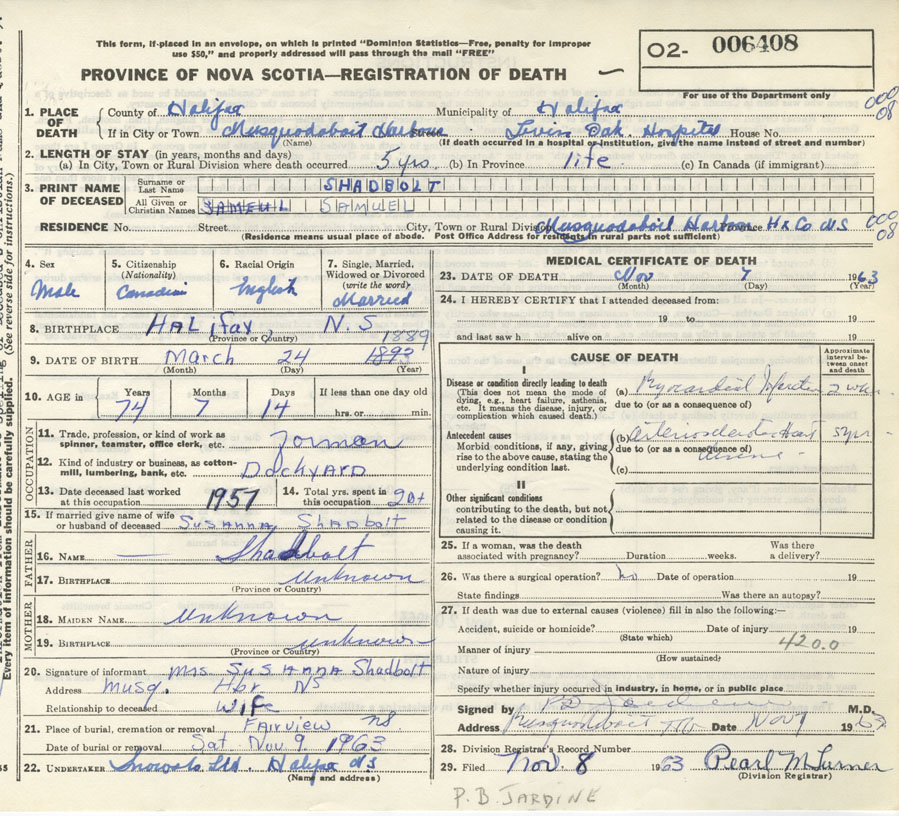 This form, if placed in an envelope, on which is printed "Dominion Statistics—Free, penalty for improper
use $50," and properly addressed will pass through the mail "FREE"
O2- 006408
For use of the Department only
PROVINCE OF NOVA SCOTIA—REGISTRATION OF DEATH
1. PLACE OF DEATH County of Halifax Municipality of Halifax 000 08
If in City or Town Musquodoboit Harbour Street Twin Oak Hospital House No.
(Name) (If death occurred in a hospital or institution, give the name instead of street and number)
2. LENGTH OF STAY (in years, months and days)
(a) In City, Town or Rural Division where death occurred 5 yrs. (b) In Province life (c) In Canada (if immigrant)
3. PRINT NAME OF DECEASED Surname or Last Name SHADBOLT
All Given or Christian Names SAMEUL SAMUEL
RESIDENCE No. Street City, Town or Rural Division Musquodoboit Harbour Province Hx Co. N.S 000 08
(Residence means usual place of abode. Post Office Address for residents in rural parts not sufficient)
4. Sex Male
5. Citizenship (Nationality) Canadian
6. Racial Origin English
7. Single, Married, Widowed or Divorced (write the word) Married
8. BIRTHPLACE HALifax, N.S
(Province or Country)
1889
9. DATE OF BIRTH March 24 1893
(Month) (Day) (Year)
10. AGE in Years 74 Months 7 Days 14 If less than one day old hrs. or min.
OCCUPATION
11. Trade, profession, or kind of work as spinner, teamster, office clerk, etc. Forman
12. Kind of industry or business, as cotton-mill, lumbering, bank, etc. Dockyard
13. Date deceased last worked at this occupation 1957 14. Total yrs. spent in this occupation 20+
15. If married give name of wife or husband of deceased Susanna Shadbolt
FATHER
16. NAME — Shadbolt
17. BIRTHPLACE Unknown
(Province or Country)
MOTHER
18. MAIDEN NAME Unknown
19. BIRTHPLACE Unknown
(Province or Country)
20. Signature of informant Mrs Susanna Shadbolt
Address Musq. Hbr NS
Relationship to deceased Wife
21. Place of burial, cremation or removal Fairview NS
Date of burial or removal Sat. Nov 9 1963
22. UNDERTAKER Snows Ltd. Halifax N.S
(Name and address)
MEDICAL CERTIFICATE OF DEATH
23. DATE OF DEATH Nov 7 1963
(Month) (Day) (Year)
24. I HEREBY CERTIFY that I attended deceased from:
19 to 19
and last saw h alive on 19
CAUSE OF DEATH
Approximate interval between onset and death
I
Disease or condition directly leading to death
(This does not mean the mode of dying, e.g., heart failure, asthenia, etc. It means the disease, injury, or complication which caused death.)
(a) Myocardial Infarction 2 wks
due to (or as a consequence of)
Antecedent causes
Morbid conditions, if any, giving rise to the above cause, stating the underlying condition last.
(b) Arteriosclerotic Heart Disease 5 yr
due to (or as a consequence of)
(c)
II
Other significant conditions
contributing to the death, but not related to the disease or condition causing it.
25. If a woman, was the death associated with pregnancy? Duration weeks. Was there a delivery?
26. Was there a surgical operation? No Date of operation 19
State findings Was there an autopsy?
27. If death was due to external causes (violence) fill in also the following:—
Accident, suicide or homicide? Date of injury 19
(State which)
Manner of injury 420.0
(How sustained)
Nature of injury
Specify whether injury occurred in industry, in home, or in public place
Signed by PB Jardine M.D.
Address Musquodoboit Date Nov 7 1963
28. Division Registrar's Record Number
29. Filed Nov. 8 1963 Pearl M
(Division Registrar)
P.B JARDINE
(See reverse side for instructions.)
Every item of information should be carefully supplied.